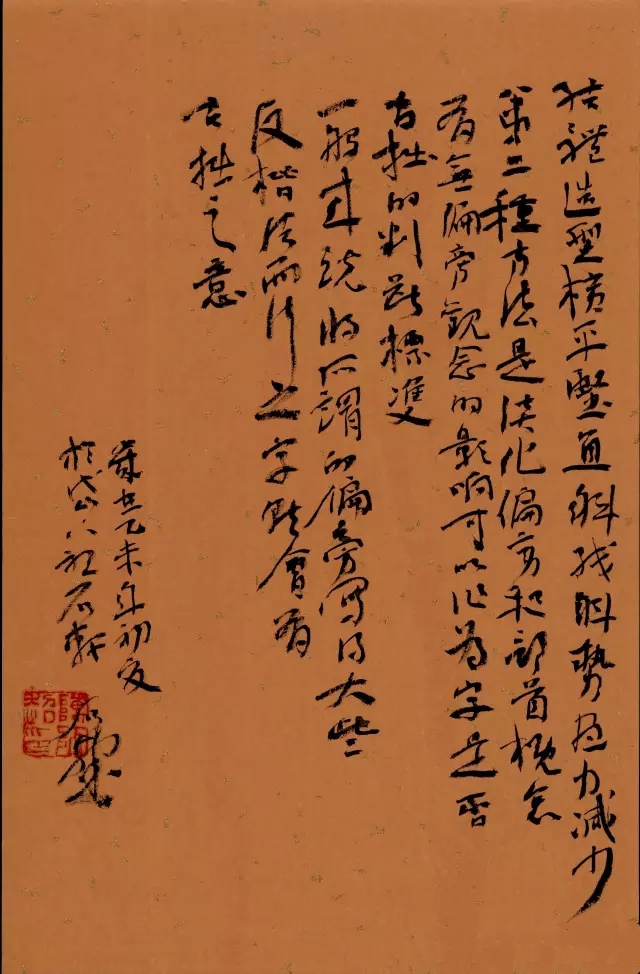 結體造型橫平豎直斜线斜勢盡力減少
第二種方法是淡化偏旁和部首概念
有無偏旁觀念的影响可以作為字是否
古拙的判斷標准
一般来説將所謂的偏旁寫得大些
反楷法而行之字就會有
古拙之意
歲在乙未年初夏
於